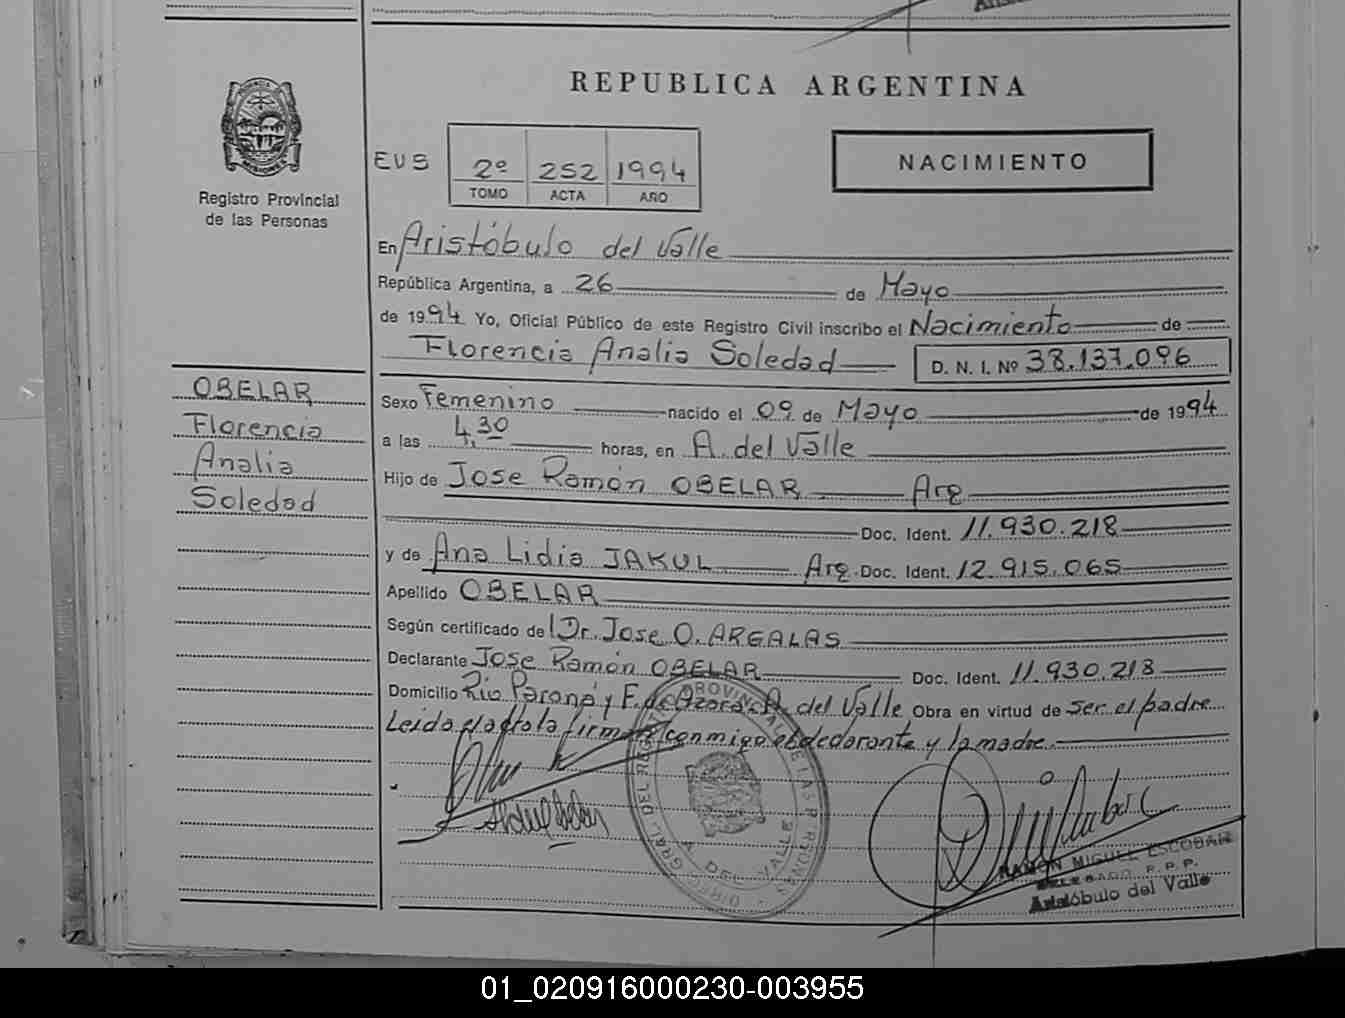 REPUBLICA ARGENTINA
Registro Provincial
de las Personas
EUS
2º 252 1994
TOMO ACTA AÑO
NACIMIENTO
En Aristóbulo del Valle
República Argentina, a 26 de Mayo
de 1994 Yo, Oficial Público de este Registro Civil inscribo el Nacimiento de
Florencia Analia Soledad D. N. I. Nº 38.137.096
OBELAR
Florencia
Analia
Soledad
Sexo Femenino nacido el 09 de Mayo de 1994
a las 4,30 horas, en A. del Valle
Hijo de Jose Ramón OBELAR Arg
Doc. Ident. 11.930.218
y de Ana Lidia JAKUL Arg. Doc. Ident. 12.915.065
Apellido OBELAR
Según certificado de Dr. Jose O. ARGALAS
Declarante Jose Ramón OBELAR Doc. Ident. 11.930.218
Domicilio Rio Paraná y F. de Azara. A. del Valle Obra en virtud de ser el padre
Leida el acta la firman conmigo el declarante y la madre.
A. DEL VALLE
RAMON MIGUEL ESCOBAR
DELEGADO R.P.P.
Aristóbulo del Valle
01_020916000230-003955